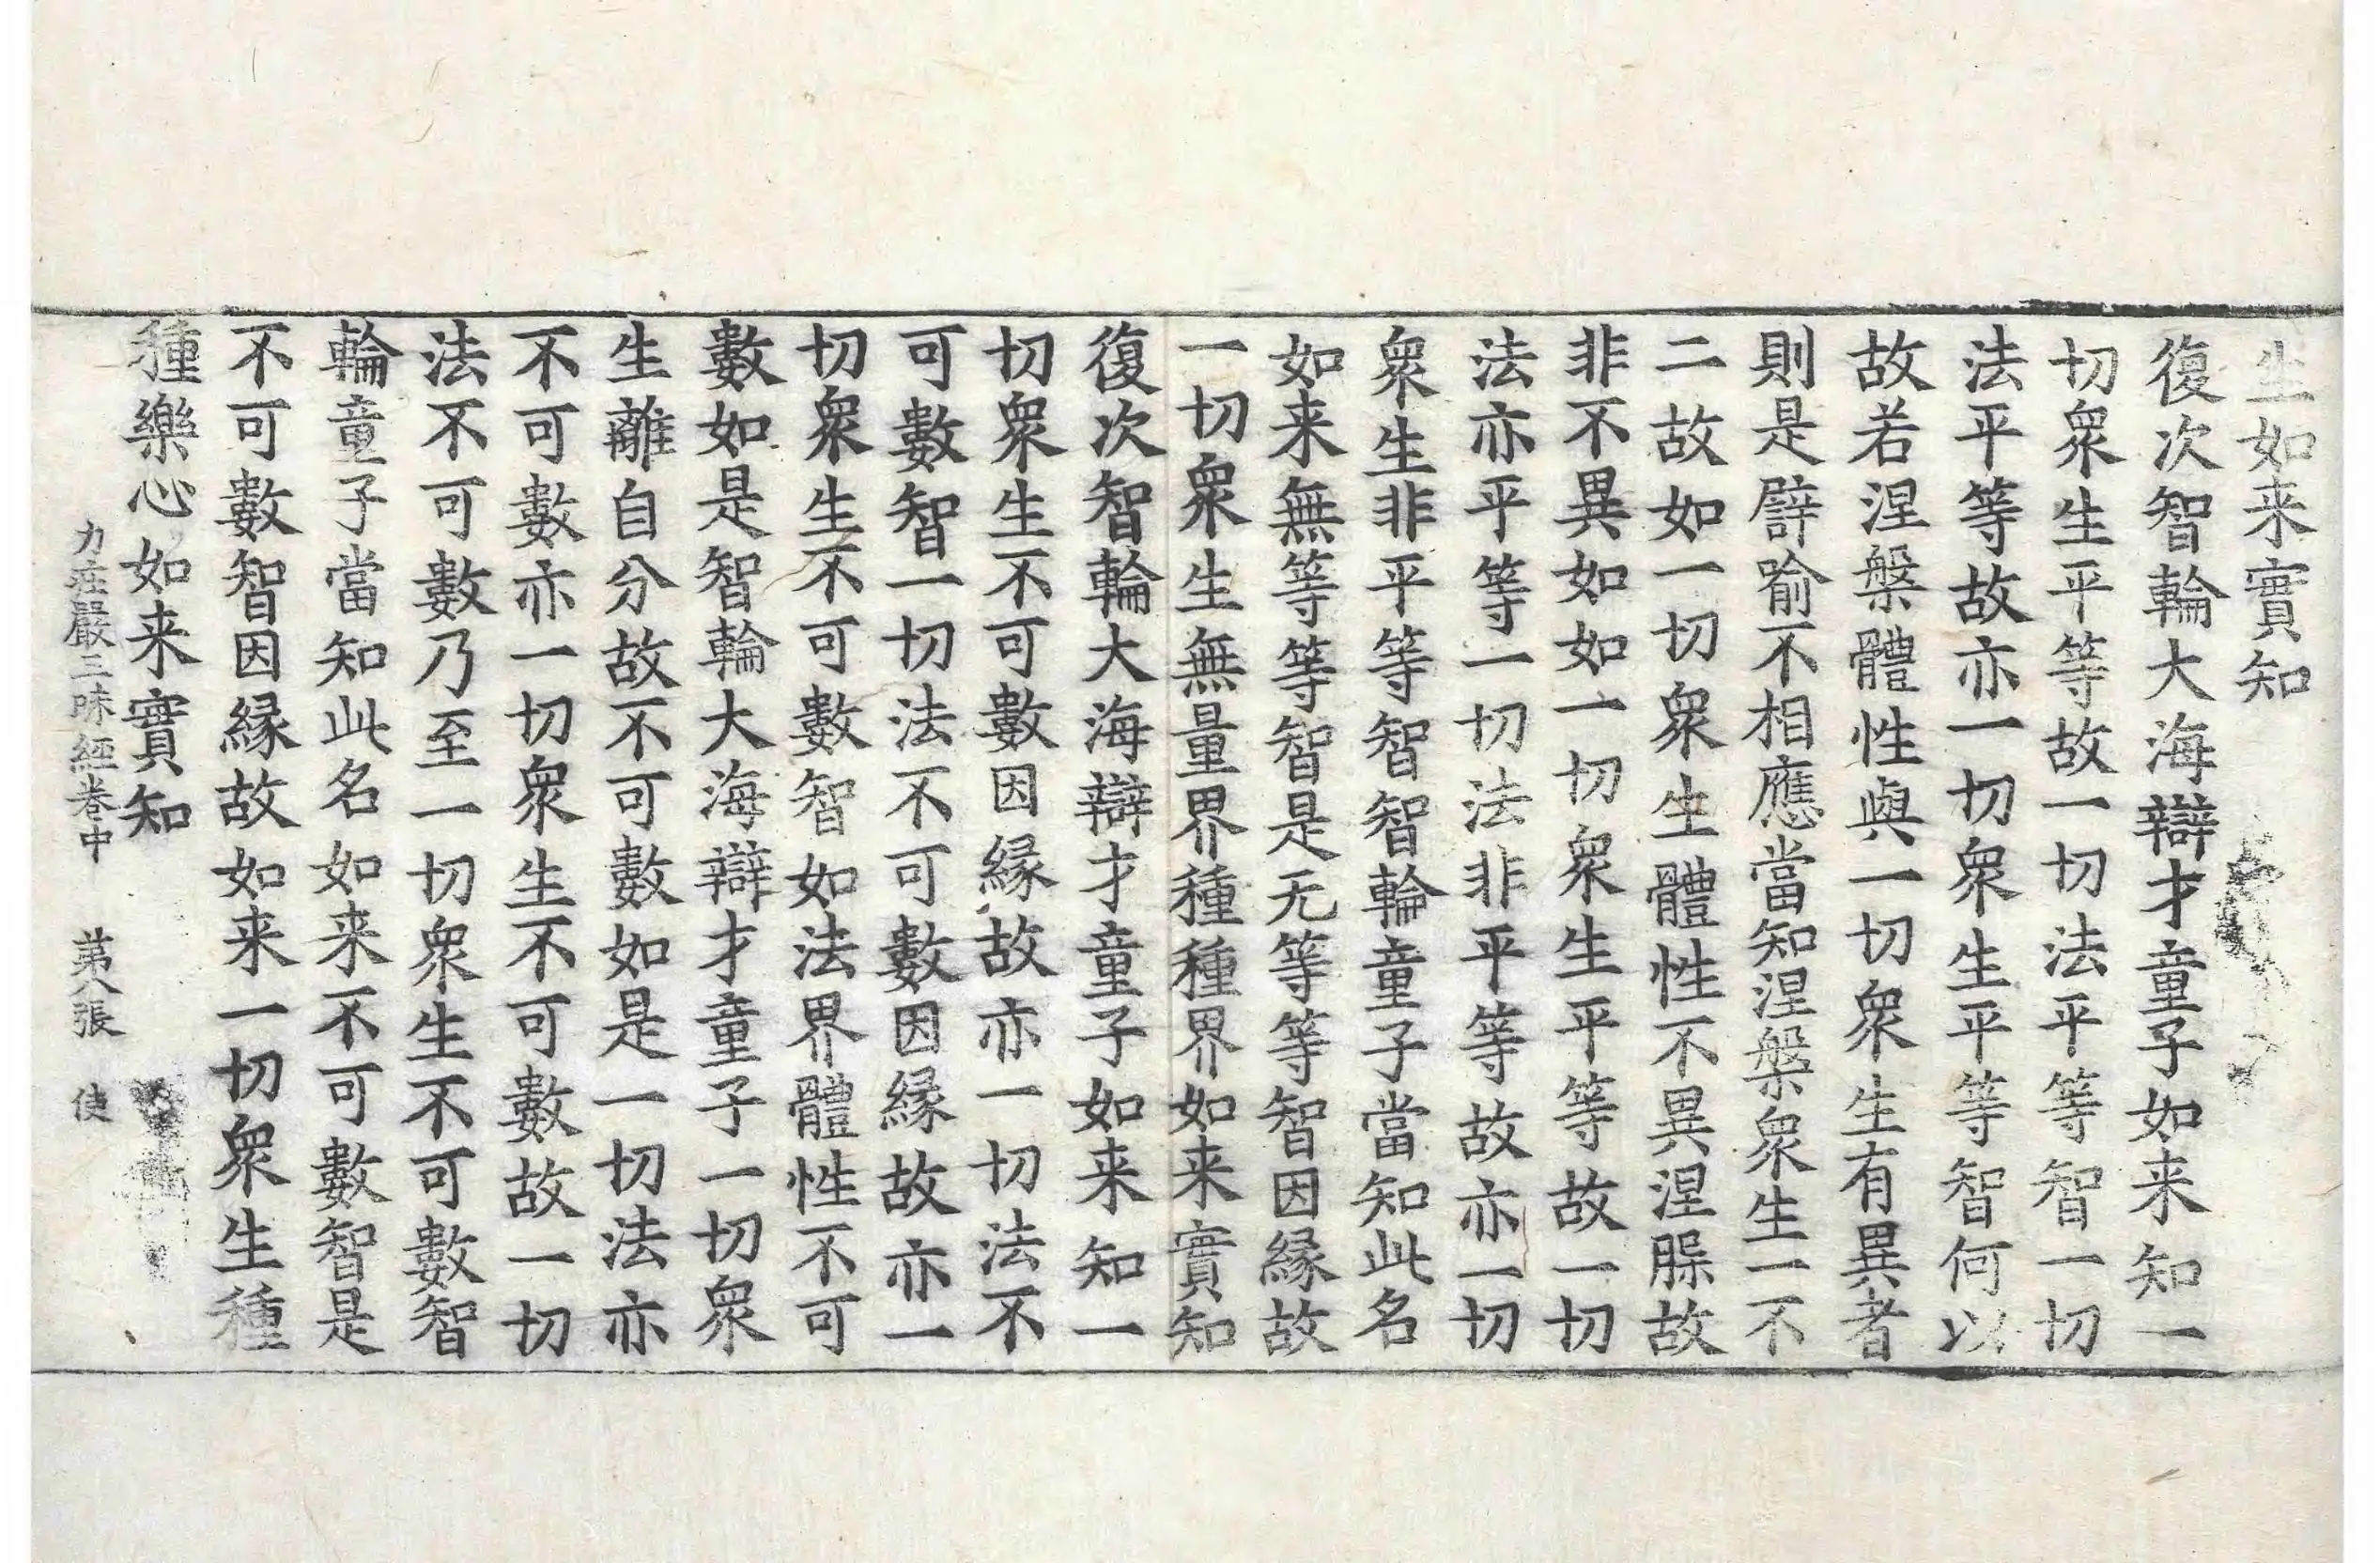 生如来實知
復次智輪大海辯才童子如来知一
切衆生平等故一切法平等智一切
法平等故亦一切衆生平等智何以
故若涅槃體性與一切衆生有異者
則是譬喻不相應當知涅槃衆生一不
二故如一切衆生體性不異涅槃故
非不異如如一切衆生平等故一切
法亦平等一切法非平等故亦一切
衆生非平等智智輪童子當知此名
如来無等等智是无等等智因縁故
一切衆生無量界種種界如来實知
復次智輪大海辯才童子如来知一
切衆生不可數因縁故亦一切法不
可數智一切法不可數因縁故亦一
切衆生不可數智如法界體性不可
數如是智輪大海辯才童子一切衆
生離自分故不可數如是一切法亦
不可數亦一切衆生不可數故一切
法不可數乃至一切衆生不可數智
輪童子當知此名如来不可數智是
不可數智因縁故如来一切衆生種
種樂心如来實知
力莊嚴三昧經卷中 第八張 使